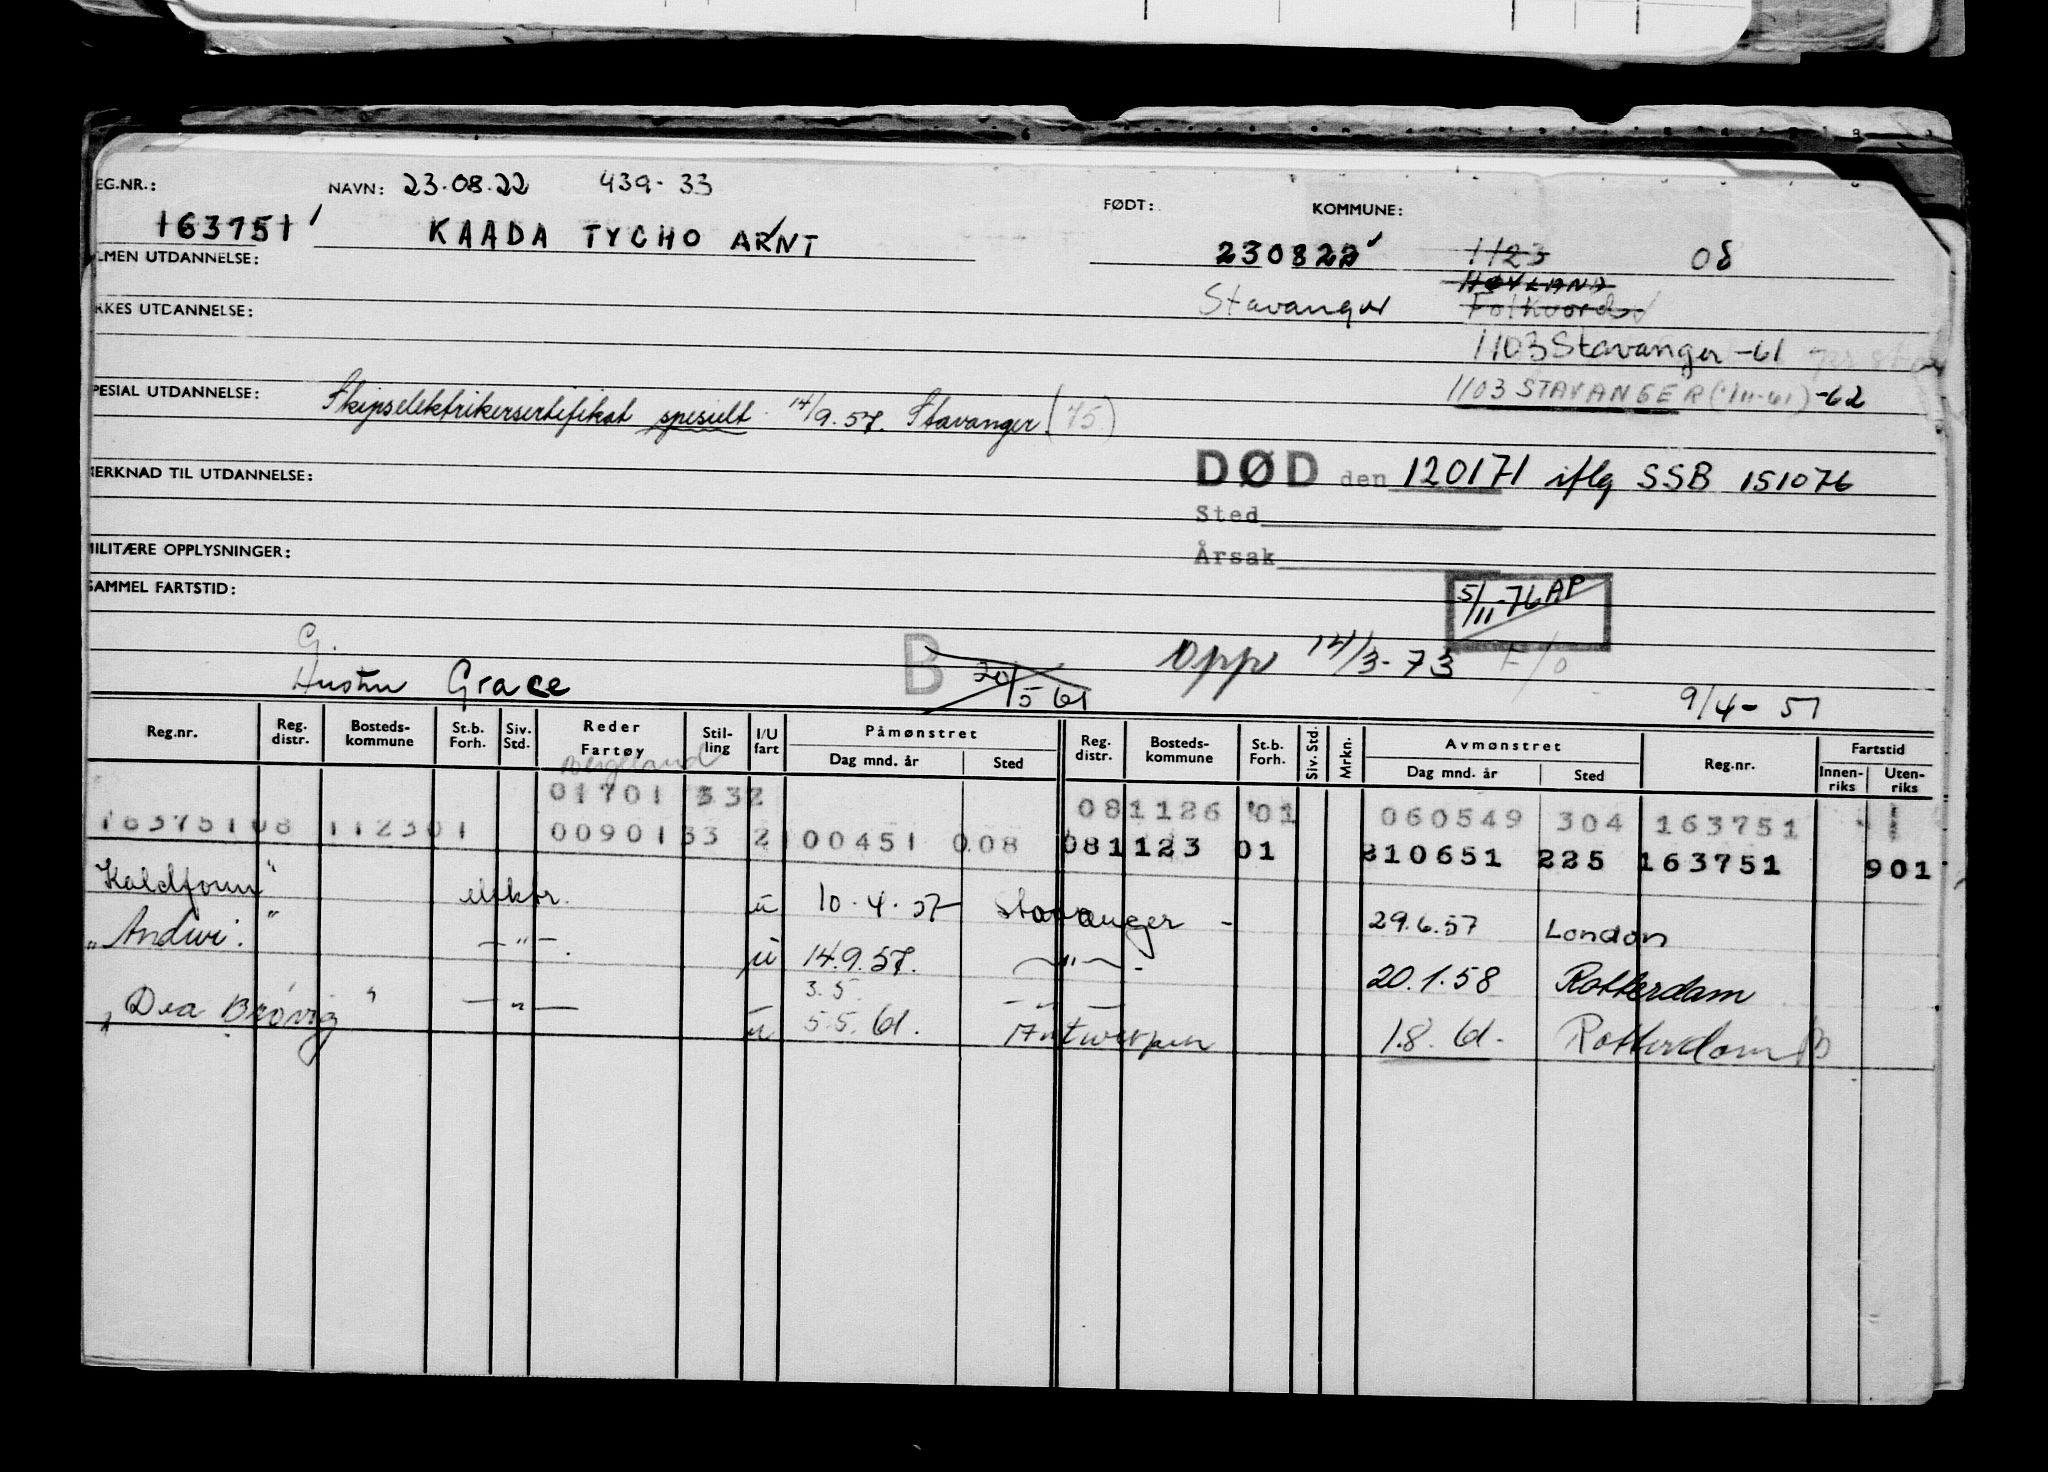 EG.NR.: NAVN: 23.08.22 439-33 FØDT: KOMMUNE:
163751 KAADA TYCHO ARNT 230822 1123 08
LMEN UTDANNELSE: HØYLAND
Stavanger Folkvord
RKES UTDANNELSE:
1103 Stavanger -61
PESIAL UTDANNELSE: Skipselektrikersertifikat spesielt 14/9.57. Stavanger (75.) 1103 STAVANGER (1/11-61) -62
MERKNAD TIL UTDANNELSE: DØD den 120171 iflg SSB 151076
Sted
MILITÆRE OPPLYSNINGER: Årsak
SAMMEL FARTSTID: 5/11-76 AP
G.
Hustru Grace B 20/5 61 Opp 14/3-73 9/4-51
Reg.nr. Reg. distr. Bosteds-kommune St.b. Forh. Siv. Std. Reder Fartøy Stil-ling I/U fart Påmønstret Dag mnd. år Sted Reg. distr. Bosteds-kommune St.b. Forh. Siv. Std. Mrkn. Avmønstret Dag mnd. år Sted Reg.nr. Fartstid Innen-riks Uten-riks
Bergeland
01701 332 081126 01 060549 304 163751 1
163751 08 1123 01 00901 33 2 100451 008 081123 01 210651 225 163751 901
Kaldfonn" elektr. u 10.4.57 Stavanger - 29.6.57 London
"Andwi." -"- u 14.9.57. -"- 20.1.58 Rotterdam
3.5. -"-
"Dea Brøvig" -"- u 5.5.61. Antwerpen 1.8.61. Rotterdam B